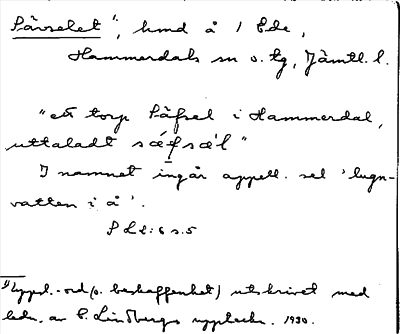 Sävselet ¹⁾, hmd å 1 Ede,
Hammerdals sn o. tg, Jämtl. l.
"ett torp Säfsel i Hammerdal,
uttaladt sæ´fsæ`l"
I namnet ingår appell. sel 'lugn-
vatten i å'.
SLl:6 s.5
¹⁾ Uppsl.-ord (o. beskaffenhet) utskrivet med
ledn. av C. Lindbergs uppteckn. 1930.